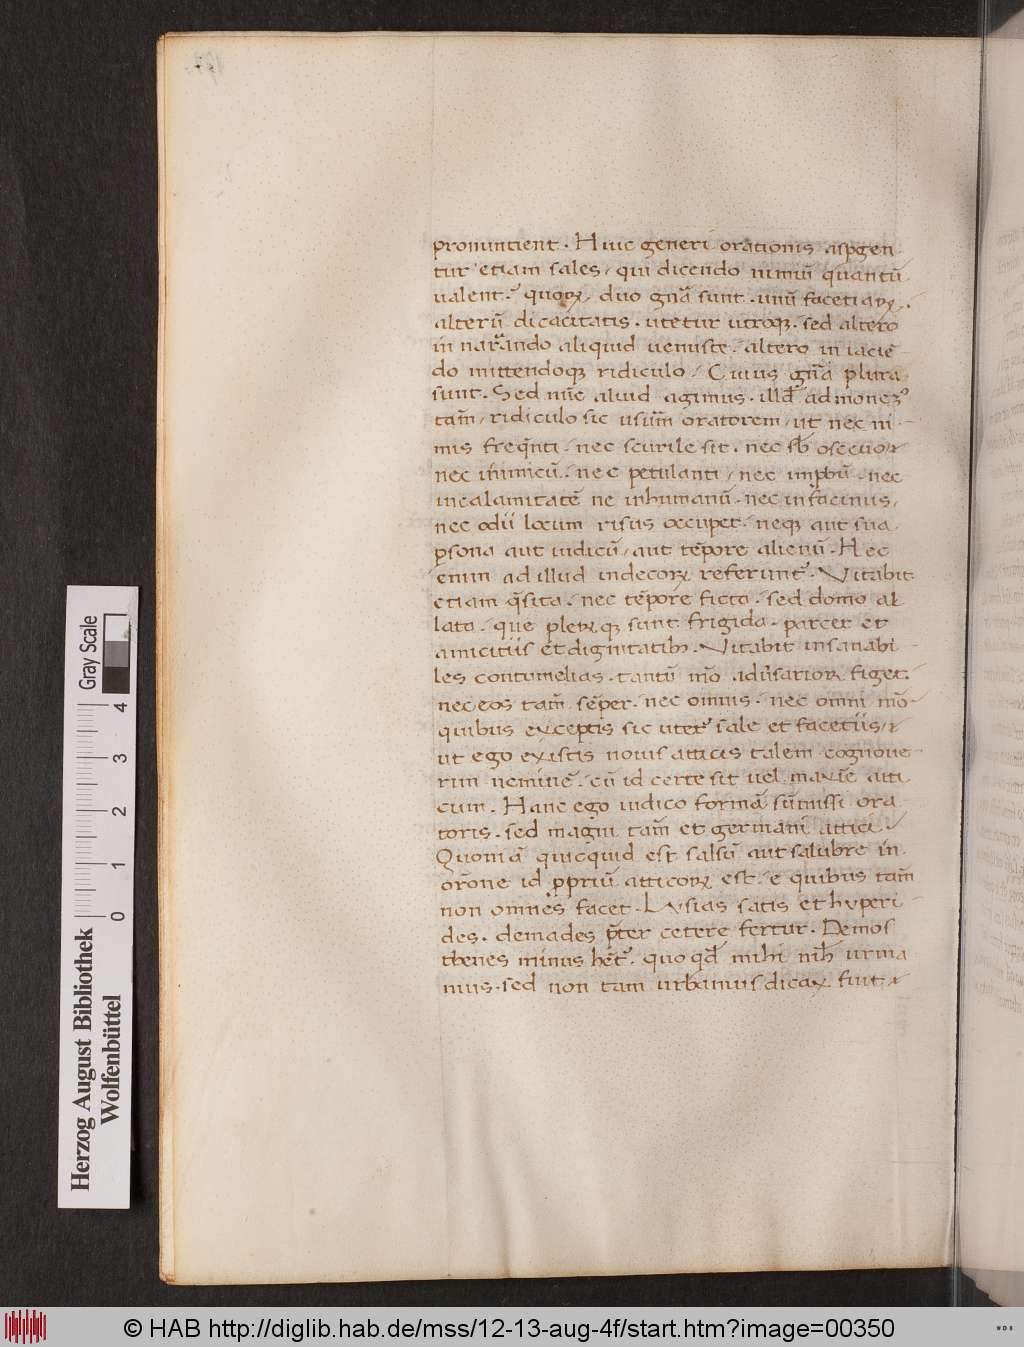 pronuntient. Huic generi orationis aspgen
tur etiam sales, qui dicendo nimiū quantū
ualent. quoꝝ, duo gn̄a sunt. unū facetiaꝝ.
alterū dicacitatis. utetur utroqꝫ. sed altero
in narrando aliquid uenuste. altero in iacie
do mittendoqꝫ ridiculo, Cuius gn̄a plura
sunt. Sed nūc aliud agimus. illd̄ admonemꝰ
tam̄, ridiculo sic usurū oratorem, ut nec ni
mis freq̄nti. nec scurile sit. nec sb̄ osceno,
nec inimicū. nec petulanti, nec improbū. nec
incalamitatē ne inhumanū. nec infacinus,
nec odii locum risus occupet. neqꝫ aut sua
ꝑsona aut iudicū, aut tēpore alienū. Hec
enim ad illud indecoꝝ referunt̄. Vitabit
etiam q̄sita. nec tēpore ficta. sed domo al
lata. que pleruqꝫ sunt frigida. parcet et
amicitiis et dignitatibꝫ. Vitabit insanabi
les contumelias. tantū mō aduersarioꝝ figet.
nec eos tam̄ sēper. nec omnis. nec omni mō
quibus exceptis sic utet̄ sale et facetiis,
ut ego ex istis nouis atticis talem cognoue
rim neminē. cū id certe sit uel maxīe atti
cum. Hanc ego iudico formā sūmissi ora
toris. sed magni tam̄ et germani attici.
Quoniā quicquid est salsū aut salubre in
or̄one id ꝓpriū atticoꝝ est. e quibus tam̄
non omnes facet. Lysias satis et hyperi
des. demades p̄ter cetere fertur. Demos
thenes minus het̄. quo qd̄ mihi nih̄ urma
nius. sed non tam urbanus dicax fuit
Herzog August Bibliothek
Wolfenbüttel
0 1 2 3 4
Gray Scale
© HAB http://diglib.hab.de/mss/12-13-aug-4f/start.htm?image=00350